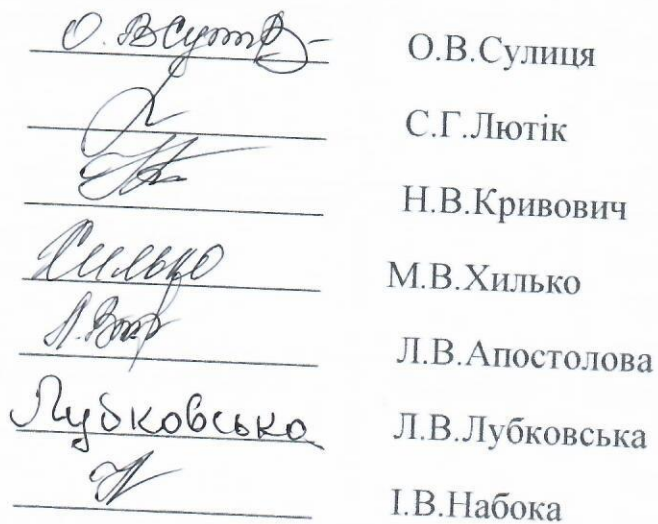 О.В.Сулиця
С.Г.Лютік
Н.В.Кривович
Хилько М.В.Хилько
Л.В.Апостолова
Лубковська Л.В.Лубковська
І.В.Набока